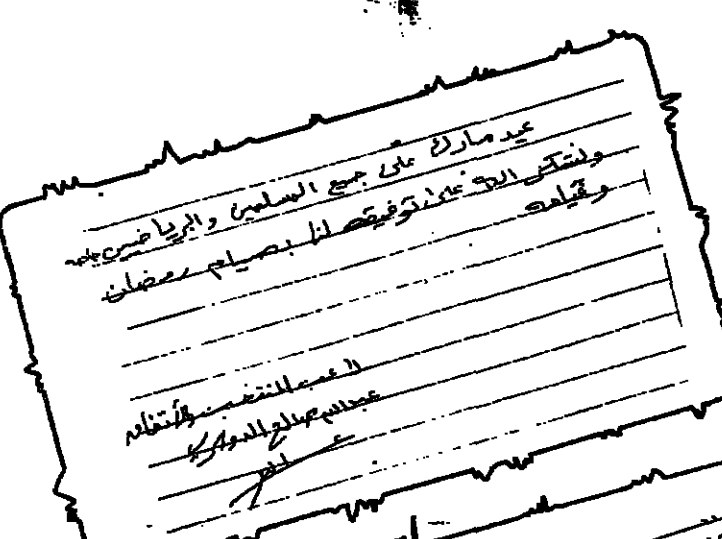 عيد مبارك على جميع المسلمين والرياضيين خاصه
ونشكر الله على توفيقه لنا بصيام رمضان
وقيامه
لاعب المنتخب والأتفاق
عبدالله صالح الدوسري